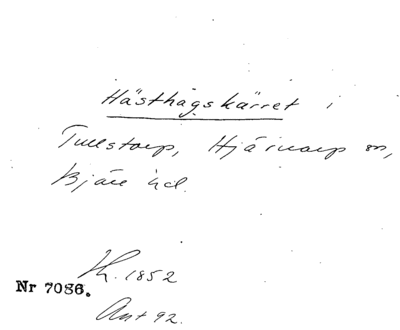 Hästhagskärret i
Tullstorp, Hjärnarp sn,
Bjäre hd.
Kh. 1852
Nr 7086.
Ant 92.